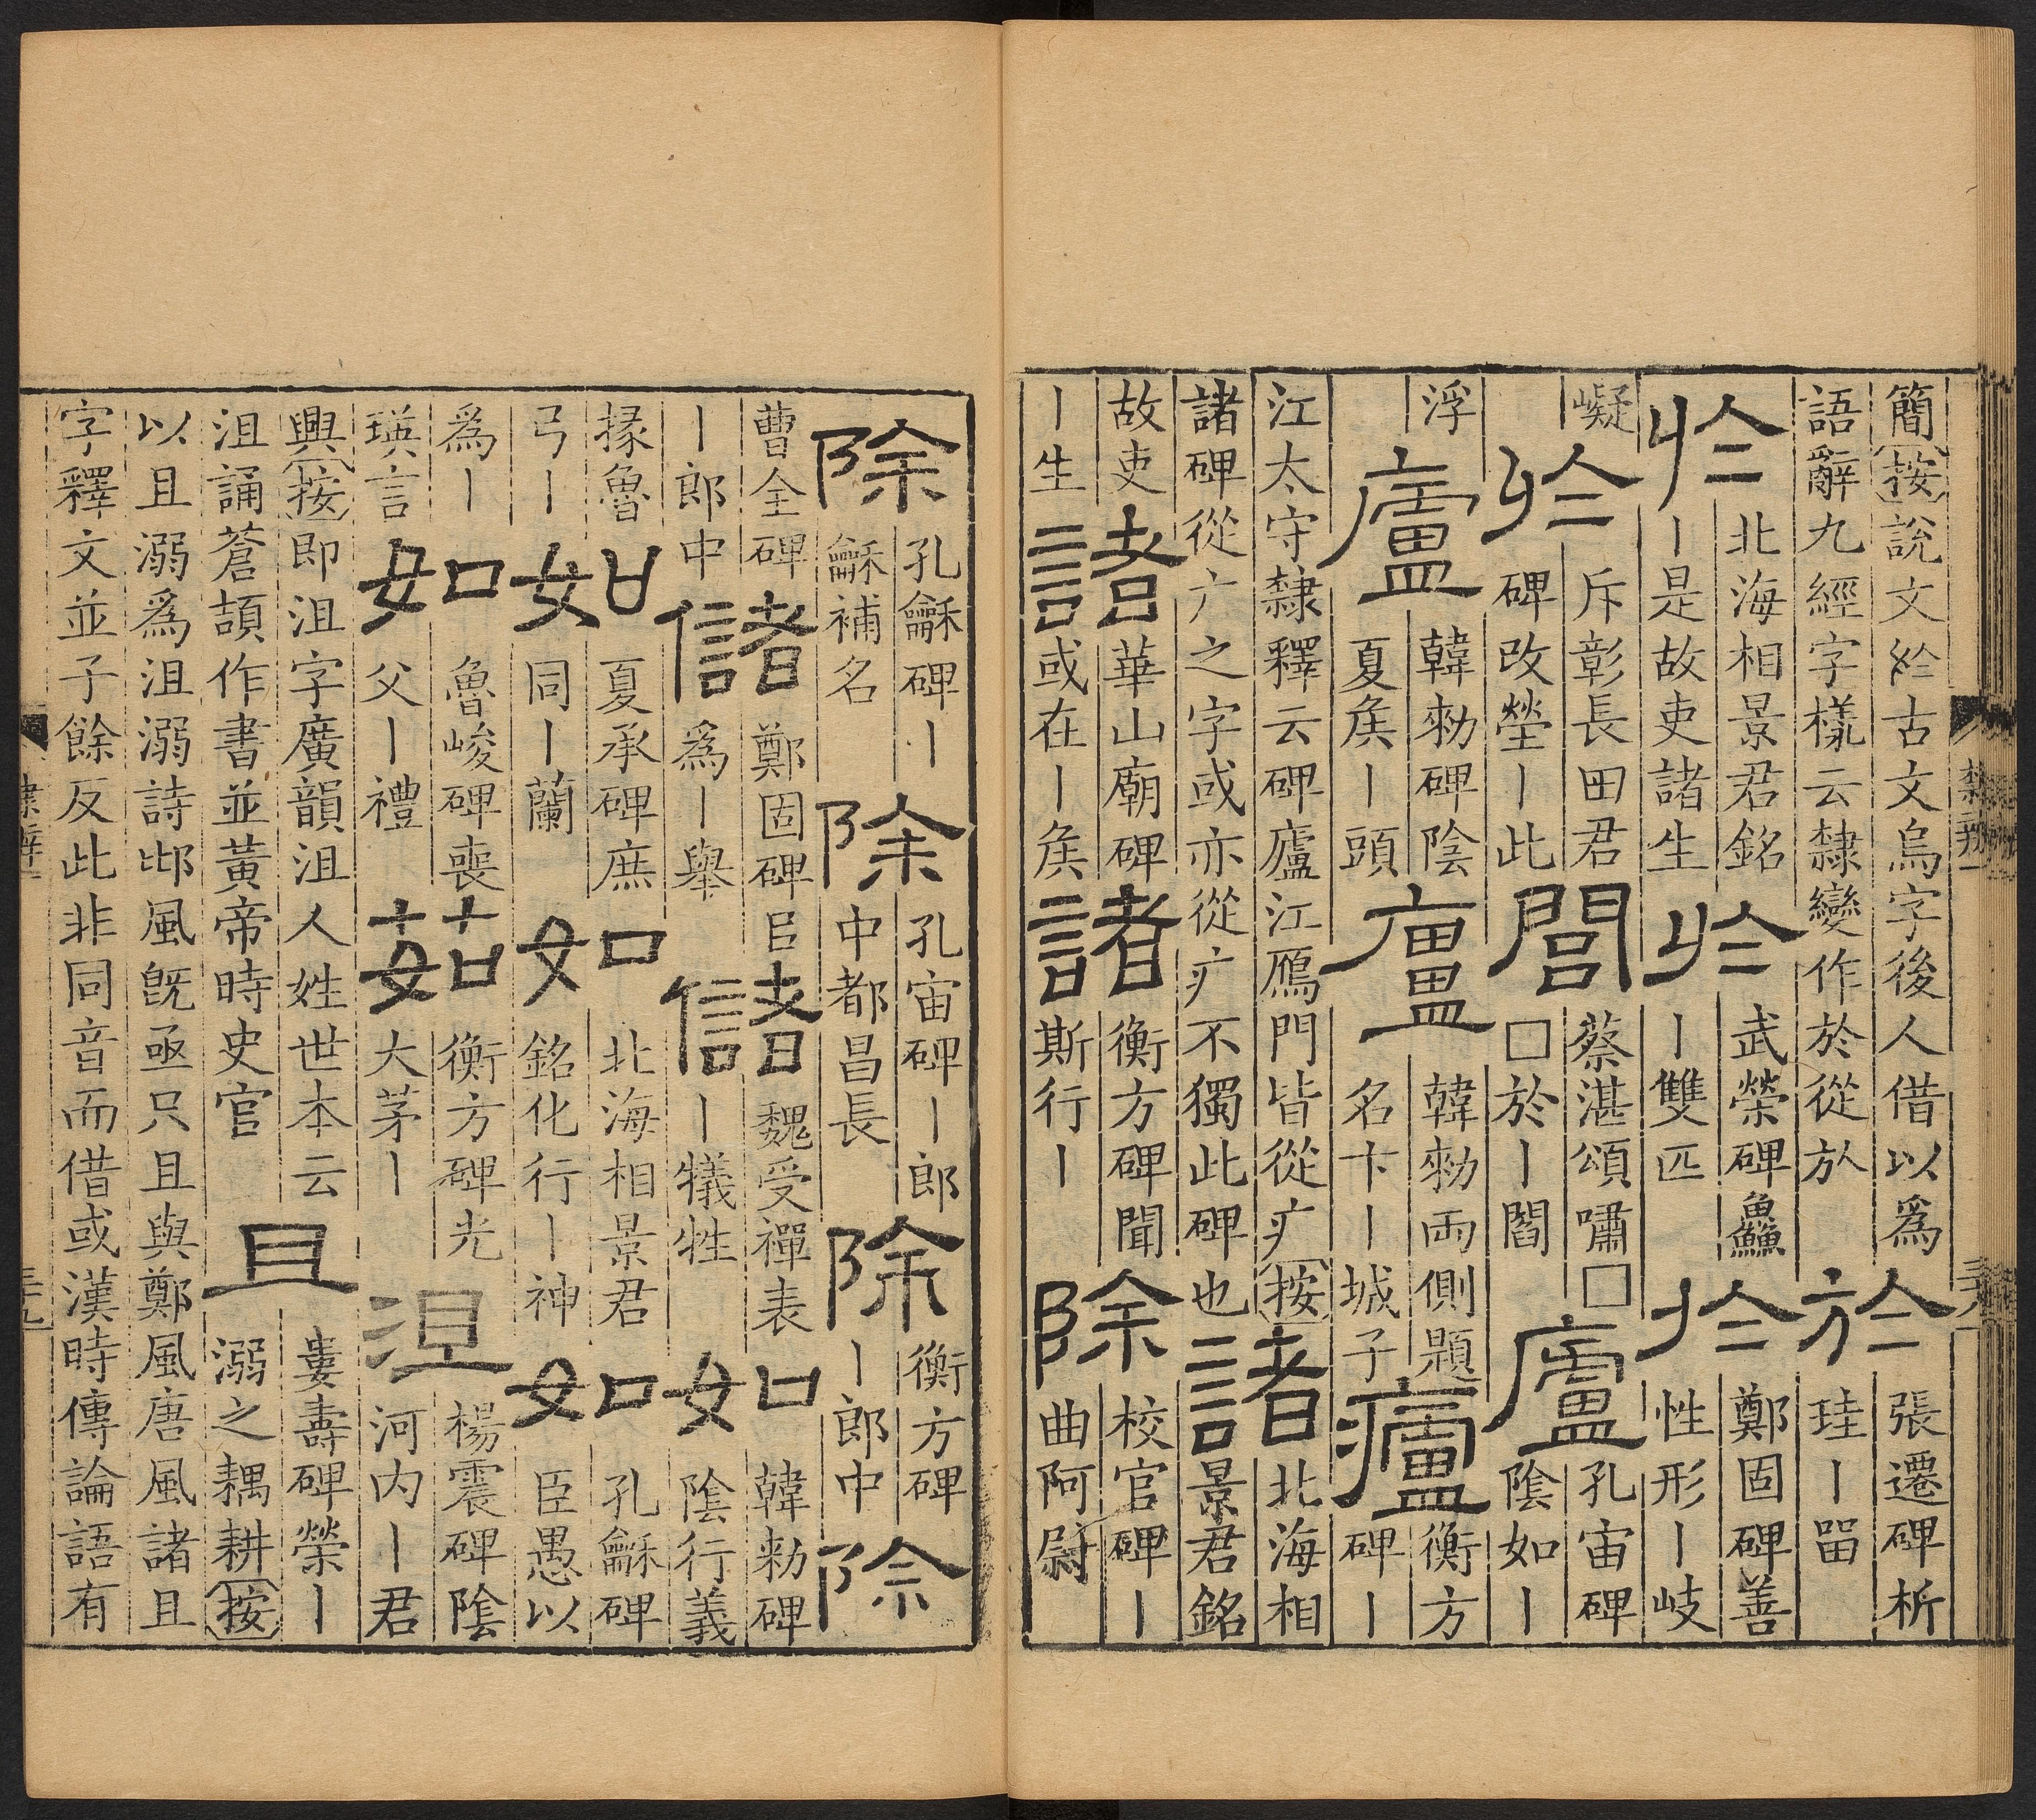 簡按說文於古文烏字後人借以爲
語辭九經字㨾云隸變作於從㫃
於
張遷碑析
珪丨留
於
北海相景君銘
丨是故吏諸生
於
武榮碑鱻
丨雙匹
於
鄭固碑善
性形丨岐
嶷
於
斥彰長田君
碑改塋丨此
閭
蔡湛頌嘯□
□於丨閻
廬
孔宙碑
陰如丨
浮
廬
韓勑碑陰
夏矦丨頭
廬
韓勑兩側題
名卞丨城子
廬
衡方
碑丨
江太守隸釋云碑廬江鴈門皆從疒按
諸碑從广之字或亦從疒不獨此碑也
諸
北海相
景君銘
故吏
丨生
諸
華山廟碑
或在丨矦
諸
衡方碑聞
斯行丨
除
校官碑丨
曲阿尉
除
孔龢碑丨
龢補名
除
孔宙碑丨郎
中都昌長
除
衡方碑
丨郎中
除
曹全碑
丨郎中
儲
鄭固碑㠯
爲丨舉
儲
魏受禪表
丨犧牲
如
韓勑碑
陰行義
掾魯
弓丨
如
夏承碑庶
同丨蘭
如
北海相景君
銘化行丨神
如
孔龢碑
臣愚以
爲丨
瑛言
如
魯峻碑喪
父丨禮
茹
衡方碑光
大茅丨
沮
楊震碑陰
河内丨君
興按即沮字廣韻沮人姓世本云
沮誦蒼頡作書並黃帝時史官
且
婁壽碑榮丨
溺之耦耕按
以且溺爲沮溺詩邶風旣亟只且與鄭風唐風諸且
字釋文並子餘反此非同音而借或漢時傳論語有